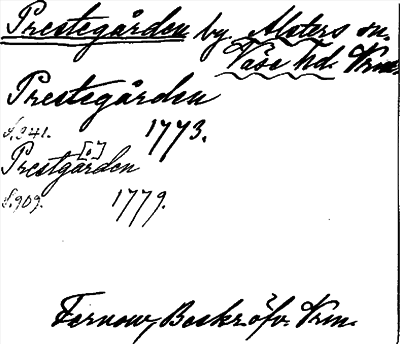 Prestegården by. Alsters sn.
Väse hd. Vrm.
Prestegården
S.241. 1773.
[o]
Prestgården
S.909. 1779.
Fernow, Beskr. öfv. Vrm.